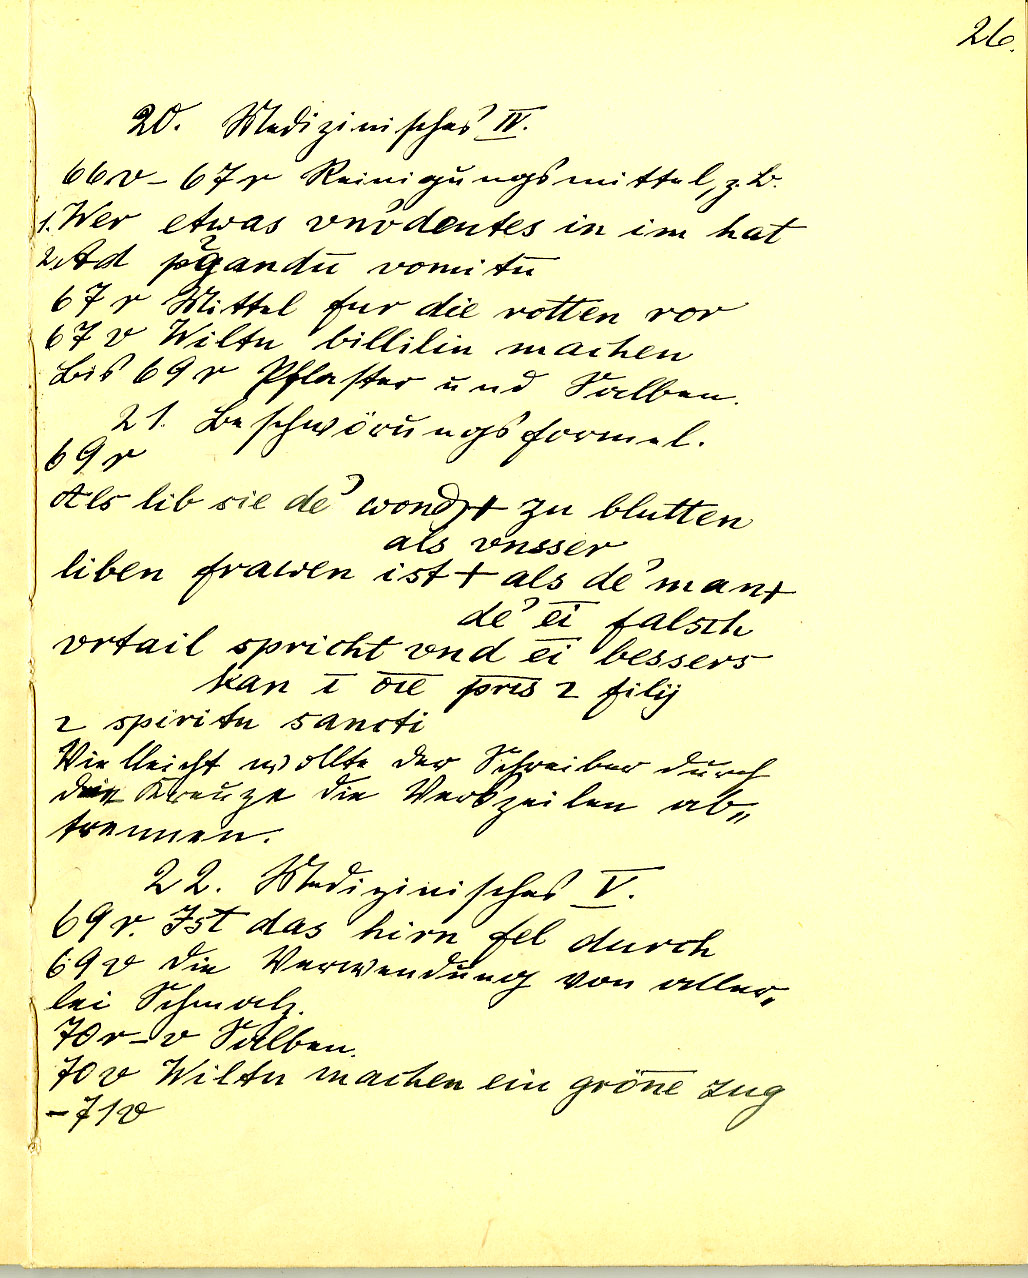 26.
20. Medizinisches IV.
66v – 67r Reinigungsmittel, z. B.
1. Wer etwas vnvͦdentes in im hat
2. Ad pꝰgandū vomitū
67 r Mittel fur die rotten ror
67 v Wiltu billilin machen
bis 69 r Pflaster und Salben.
21. Beschwörungsformel.
69 r
Als lib sie de' wond + zu blutten
als vnsser
liben frawen ist + als de' man +
de' eī falsch
vrtail spricht vnd eī bessers
kan ī oīe pr̄is ⁊ filij
⁊ spiritu sancti
Vielleicht wollte der Schreiber durch
die Kreuze die Verszeilen ab„
trennen.
22. Medizinisches V.
69 r. Ist das hirn fel durch
69 v die Verwendung von aller„
lei Schmalz.
70 r – v Salben.
70 v Wiltu machen ein gröne zug
– 71 v